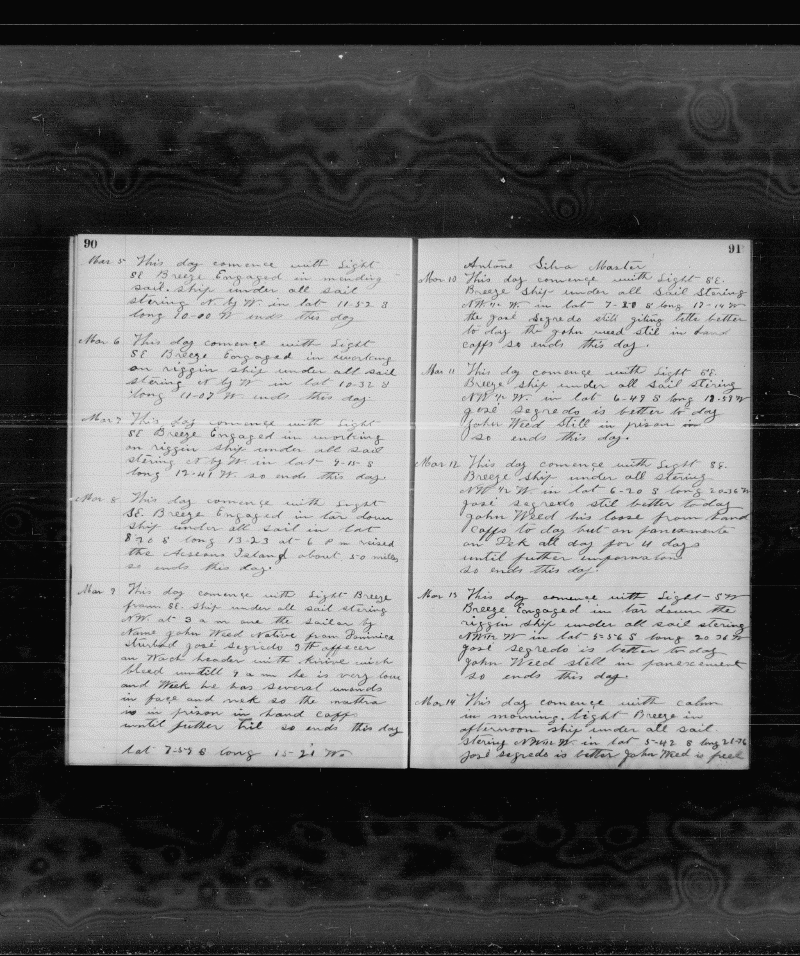 90
Mar 5 This day comence with Light
SE Breeze Engaged in mending
sail. ship under all sail
stering N by W. in lat 11-52 S
long 10-00 W ends this day
Mar 6 This day comence with Light
SE Breeze Engaged in working
on riggin ship under all sail
stering N by W in lat 10-32 S
long 11-07 W ends this day
Mar 7 This day comence with Light
SE Breeze Engaged in working
on riggin ship under all sail
stering N by W in lat 9-11 S
long 12-41 W so ends this day.
Mar 8 This day comence with Light
SE. Breeze Engaged in tar down
ship under all sail in lat
8-20 S long 13-23 at 6 P m raised
the Island about 50 miles
so ends this day.
Mar 9 This day comence with Light Breeze
from SE. ship under all sail stering
NW. at 3 a m one the sailor by
Name John Weed Native from
José Segredo 3th
on Wach header with wich
bleed untill 9 a m he is very low
and Week he has several wounds
in face and nek so the
is in prison in hand caff
until futher so ends this day
lat 7-59 S long 15-21 W.
91
Antone Silva Master
Mar 10 This day comence with Light SE.
Breeze Ship under all Sail Stering
NW ½ W. in lat 7- S long 17-14 W
the José Segredo still giting little better
to day the John weed stil in hand
caffs so ends this day.
Mar 11 This day comence with Light SE
Breeze ship under all sail stering
NW ½ W. in lat 6-49 S long W
José segredo is better to day
John Weed Still in prison in
so ends this day.
Mar 12 This day comence with Light SE.
Breeze Ship under all stering
NW ½ W in lat 6-20 S long 20-36 W
José segredo stil better to day
John Weed his loose from hand
caffs to day but on
on Dek all day for 4 days
until futher
so ends this day
Mar 13 This day comence with Light S W
Breeze Engaged in tar down the
riggin ship under all sail stering
W in lat 5-56 S long 20 26 W
José segredo is better to day
John Weed still in
so ends this day.
Mar 14 This day comence with calm
in morning. Light Breeze in
afternoon ship under all sail
stering W. in lat 5-42 S long 21-
José segredo is better John Weed is